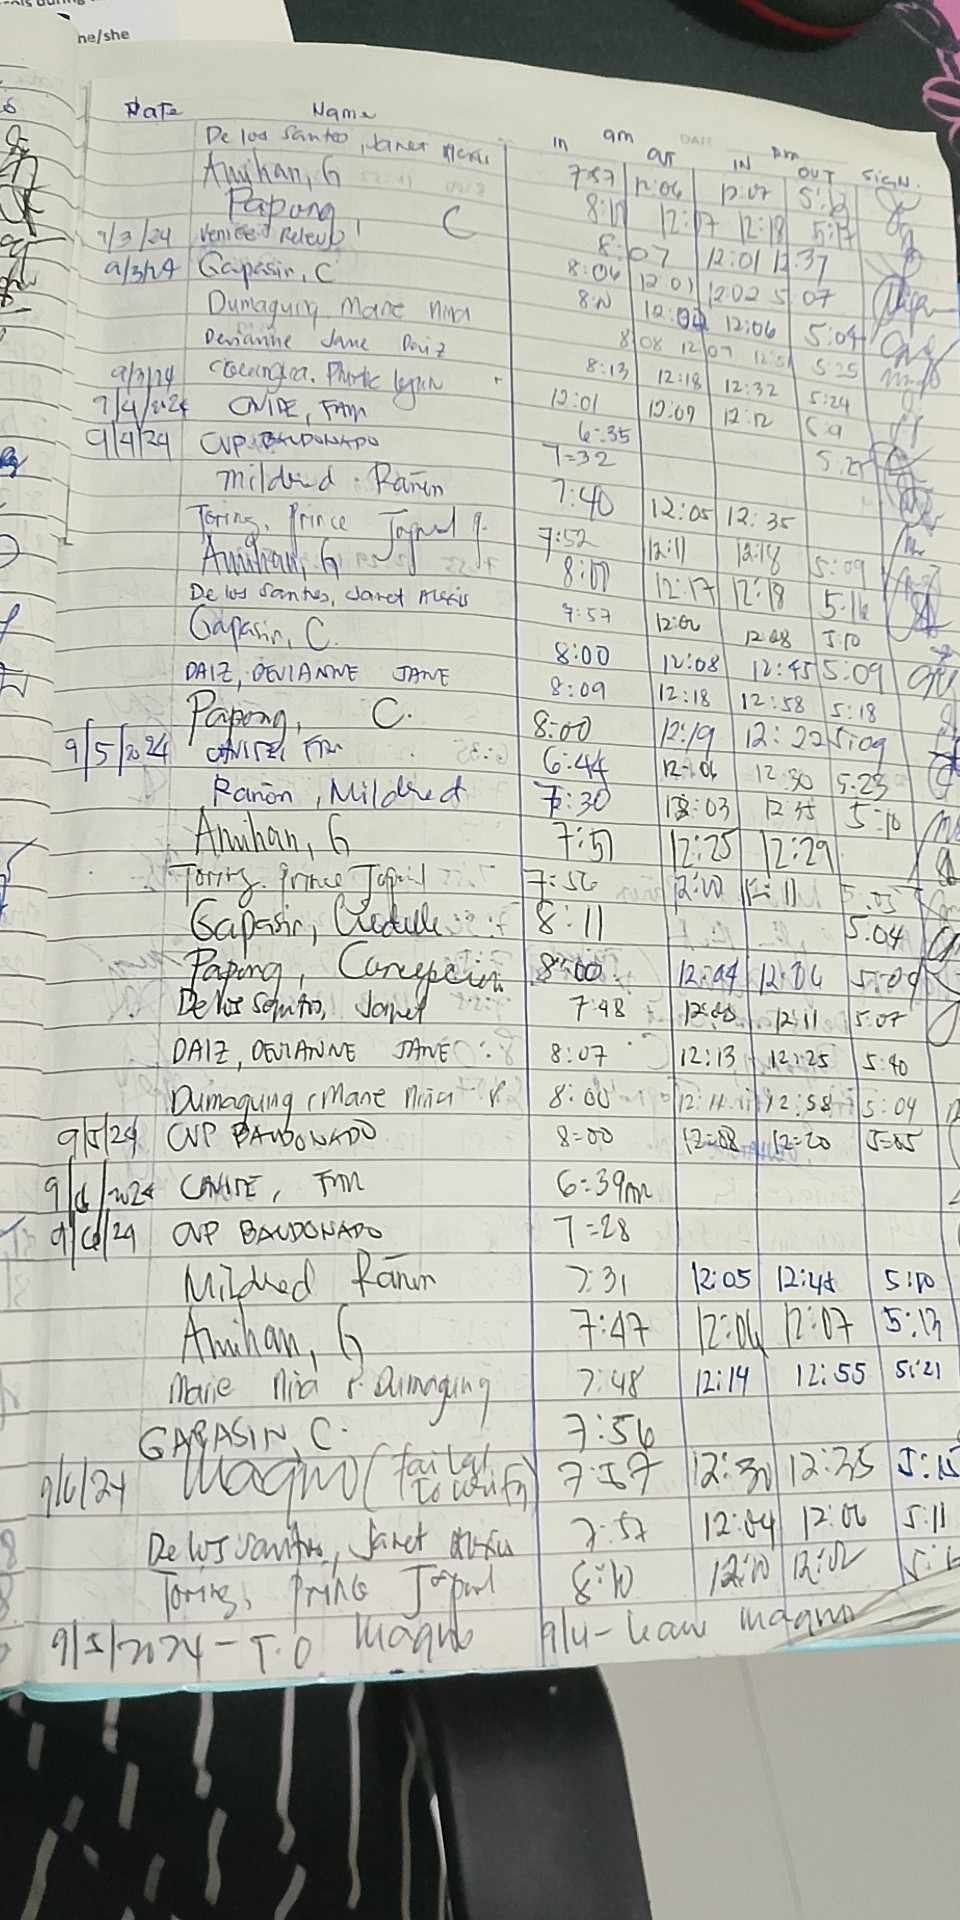 he/she
Date Name In am out IN pm OUT Sign.
De los Santos, Janet Alexis 7:57 12:06 12:07 5:12
Amihan, G 8:11 12:17 12:18 5:17
Papong, C 8:07 12:01 12:37
9/3/24 8:06 12:01 12:02 5:07
9/3/24 Gapasin, C 12:06 5:04
Dumaguing Marie Nina 8:08 12:09 5:25
Devianne Jane Daiz 8:13 12:18 12:32 5:24
9/3/24 12:01 12:09 12:12
9/4/2024 CANITE, FAM 6:35
9/4/24 CVP BAUDONADO 7=32
Mildred Rañon 7:40 12:05 12:35
Toring, Prince 7:52 12:11 12:18 5:09
Amihan, G 12:17 12:18 5:16
De los Santos, Janet Alexis 7:57 12:06 12:08 5:10
Gapasin, C. 8:00 12:08 12:45 5:09
DAIZ, DEVIANNE JANE 8:09 12:18 12:58 5:18
Papong, C. 8:00 12:19 12:22 5:09
9/5/2024 CANITE, FAM 6:44 12:06 12:30 5:23
Rañon, Mildred 7:30 12:03 12:35 5:10
Amihan, G 7:51 12:25 12:29
Toring, Prince 7:56 12:11 5:05
Gapasin, 8:11 5:04
Papong, Concepcion 8:00 12:04 12:06 5:09
De los Santos, Janet 7:48 12:11 5:07
DAIZ, DEVIANNE JANE 8:07 12:13 12:25 5:40
Dumaguing, Marie Nina P. 8:00 12:11 12:58 5:04
9/5/24 CVP BAUDONADO 8=00 12=08 12=20 5=05
9/6/2024 CANITE, FAM 6=39am
9/6/24 CVP BAUDONADO 7=28
Mildred Rañon 7:31 12:05 12:48 5:10
Amihan, G 7:47 12:06 12:07 5:13
Marie Nina P. Dumaguing 7:48 12:14 12:55 5:21
GAPASIN, C. 7:56
9/6/24 Magno (failed to write) 7:57 12:30 12:35 5:15
De los Santos, Janet Alexis 7:57 12:04 12:06 5:11
Toring, Prince 8:10 12:10 12:12
9/5/2024 - T.O Magno 9/4 - Leave Magno